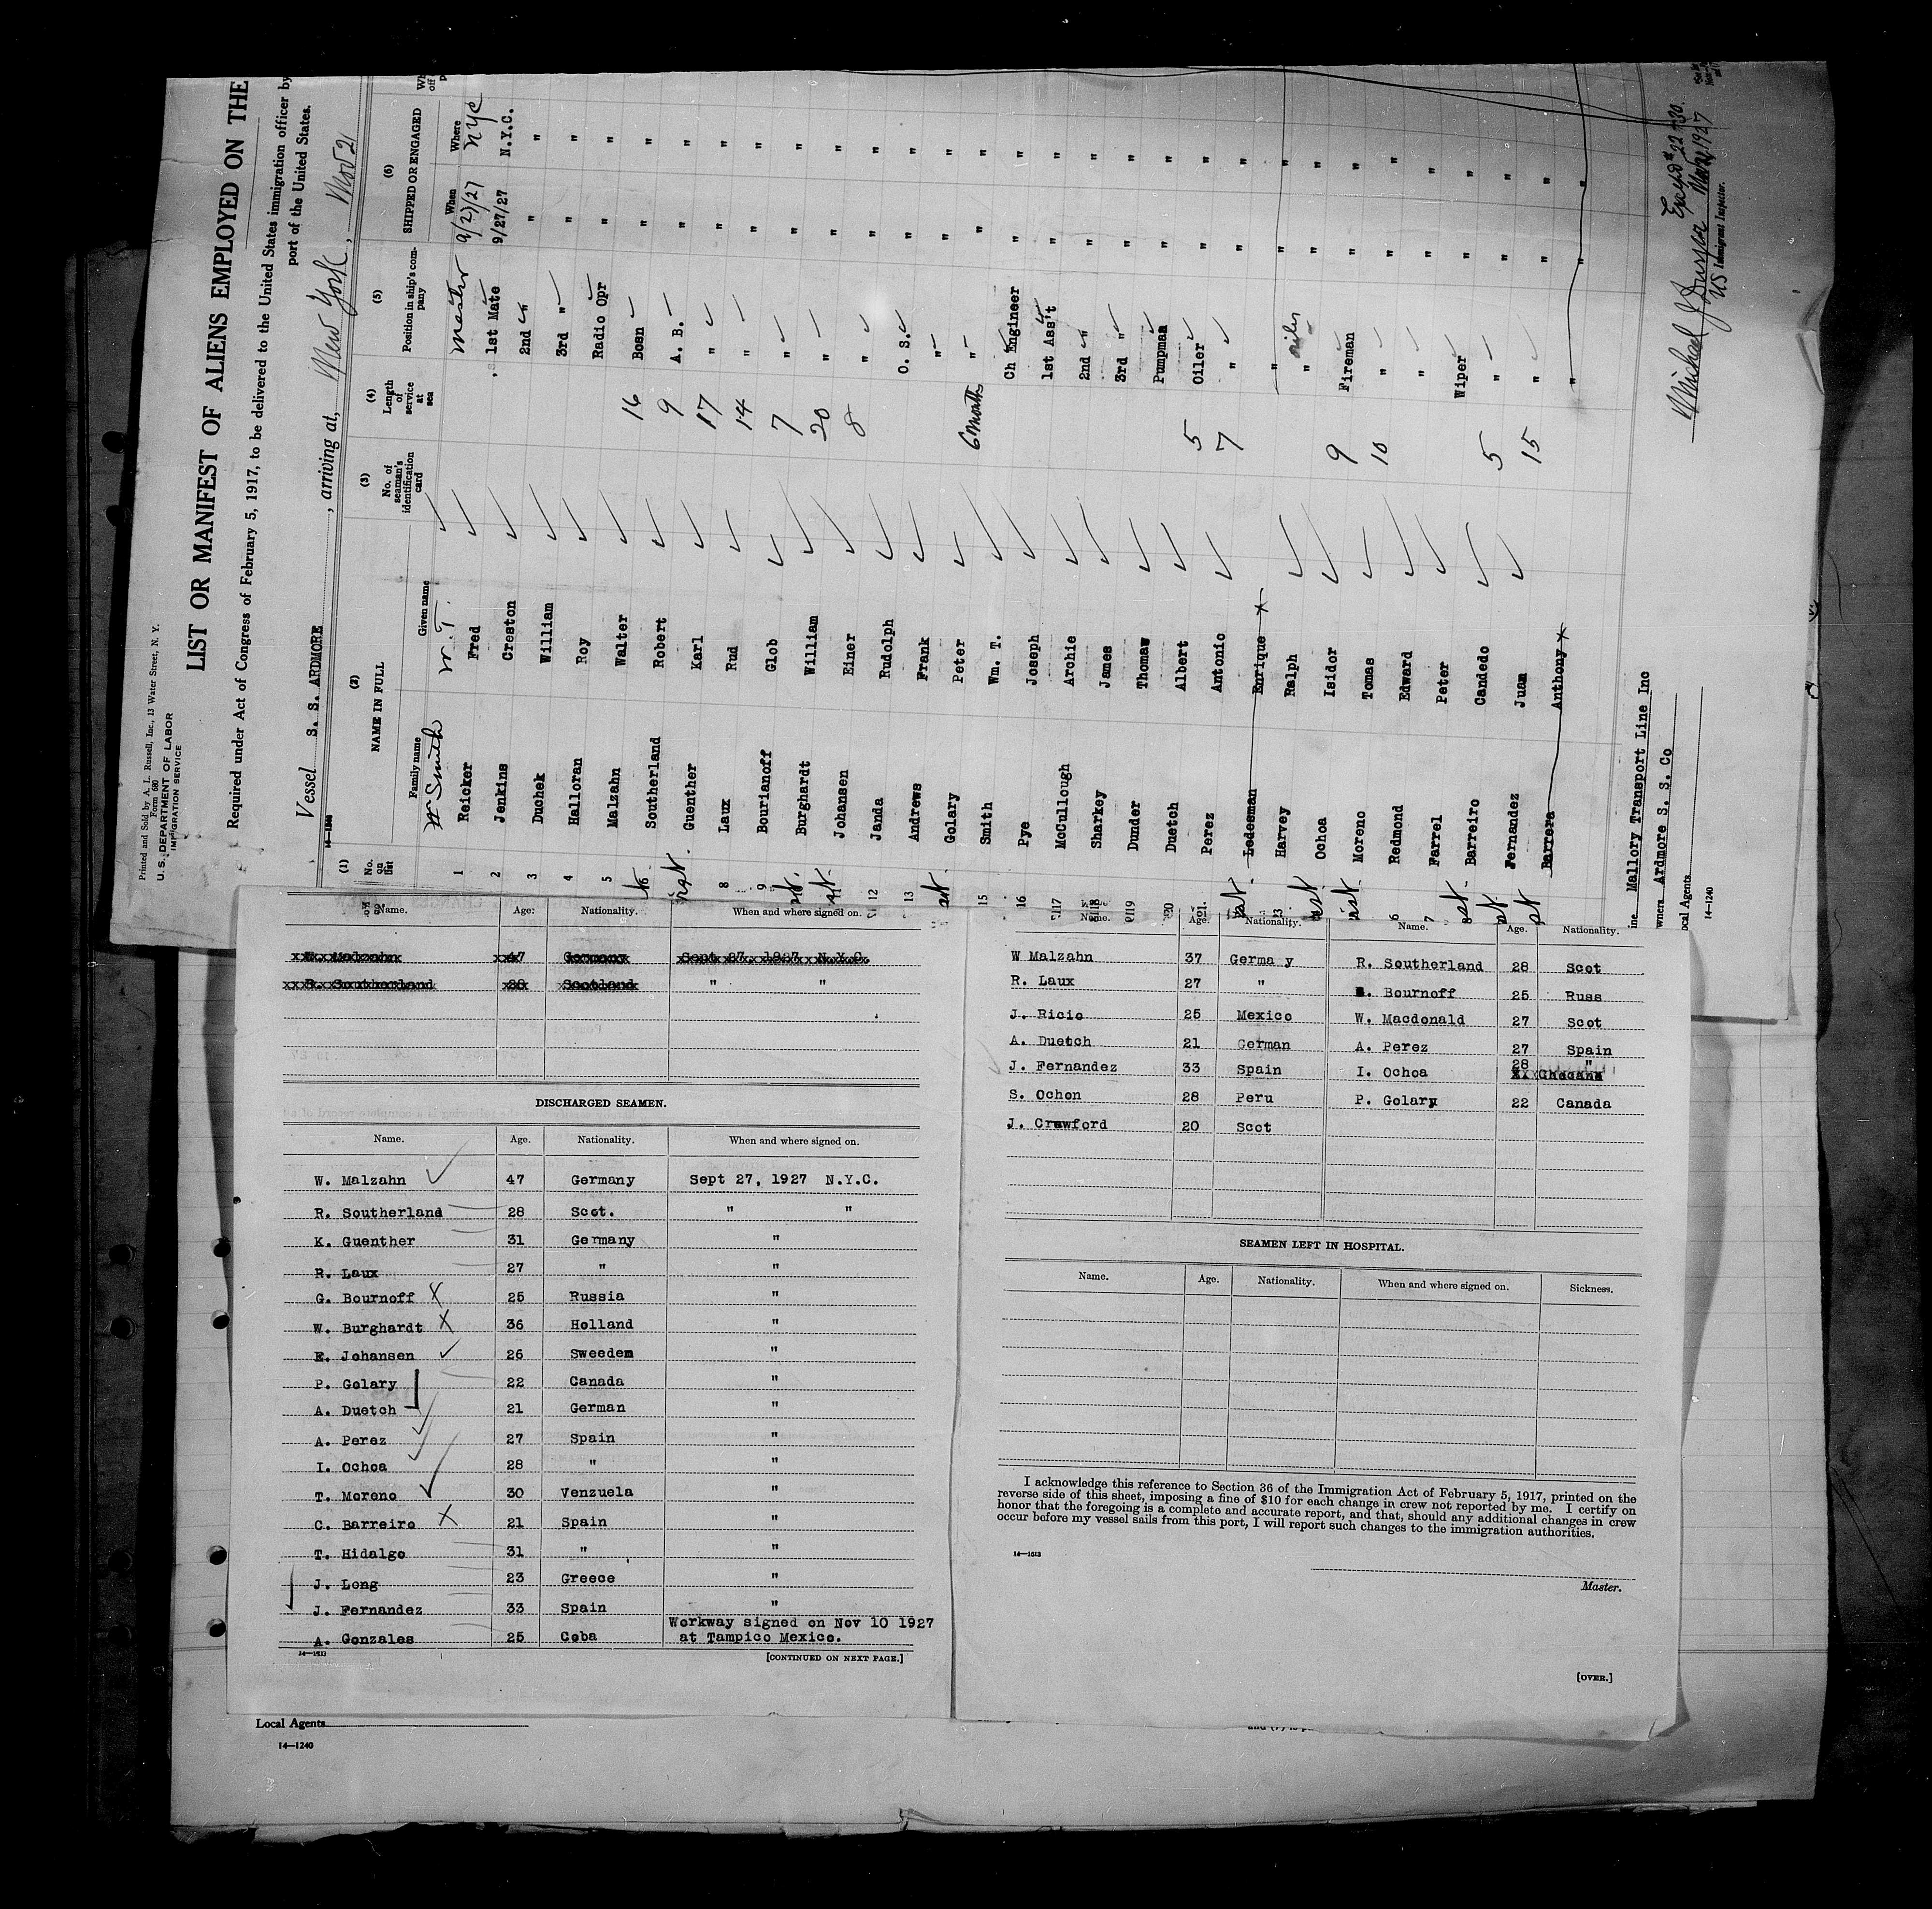 Printed and Sold by A. L. Russell, Inc., 13 Water Street, N. Y.
Form 680
U. S. DEPARTMENT OF LABOR
IMMIGRATION SERVICE
LIST OR MANIFEST OF ALIENS EMPLOYED ON THE
Required under Act of Congress of February 5, 1917, to be delivered to the United States immigration officer by
port of the United States.
Vessel S. S. ARDMORE, arriving at, New York, Nov 21
(1) (2) (3) (4) (5) (6)
No. on list NAME IN FULL No. of seaman's identification card Length of service at sea Position in ship's company SHIPPED OR ENGAGED
Family name Given name When Where
Smith W. T. Master 9/27/27 NYC
1 Reicker Fred 1st Mate 9/27/27 N.Y.C.
2 Jenkins Creston 2nd " " "
3 Duchek William 3rd " " "
4 Halloran Roy Radio Opr " "
5 Malzahn Walter 16 Bosn " "
Southerland Robert 9 A. B. " "
Guenther Karl 17 " " "
8 Laux Rud 14 " " "
9 Bourianoff Glob 7 " " "
Burghardt William 20 " " "
Johansen Einer 8 " " "
12 Janda Rudolph O. S. " "
13 Andrews Frank " " "
Golary Peter 6 months " " "
15 Smith Wm. T. Ch Engineer " "
16 Pye Joseph 1st Ass't " "
17 McCullough Archie 2nd " " "
18 Sharkey James 3rd " " "
19 Dunder Thomas Pumpman " "
20 Duetch Albert 5 Oiler " "
21 Perez Antonio 7 " " "
Ledesman Enrique x " " "
3 Harvey Ralph " oiler " "
Ochoa Isidor 9 Fireman " "
Moreno Tomas 10 " " "
6 Redmond Edward " " "
7 Farrel Peter Wiper " "
Barreiro Candedo 5 " " "
Fernandez Juan 15 " " "
Barrera Anthony x " " "
Mallory Transport Line Inc
wners Ardmore S. S. Co
ocal Agents
14-1240
Immigrant Inspector.
Name. Age: Nationality. When and where signed on.
R. Southerland 28 Scotland " "
DISCHARGED SEAMEN.
Name. Age. Nationality. When and where signed on.
W. Malzahn 47 Germany Sept 27, 1927 N.Y.C.
R. Southerland 28 Scot. " "
K. Guenther 31 Germany "
R. Laux 27 " "
G. Bournoff 25 Russia "
W. Burghardt 36 Holland "
E. Johansen 26 Sweden "
P. Golary 22 Canada "
A. Duetch 21 German "
A. Perez 27 Spain "
I. Ochoa 28 " "
T. Moreno 30 Venzuela "
C. Barreiro 21 Spain "
T. Hidalgo 31 " "
J. Long 23 Greece "
J. Fernandez 33 Spain "
A. Gonzales 25 Coba Workway signed on Nov 10 1927
at Tampico Mexico.
[CONTINUED ON NEXT PAGE.]
Name. Age. Nationality. Name. Age. Nationality.
W Malzahn 37 Germa y R. Southerland 28 Scot
R. Laux 27 " Bournoff 25 Russ
J. Ricio 25 Mexico W. Macdonald 27 Scot
A. Duetch 21 German A. Perez 27 Spain
J. Fernandez 33 Spain I. Ochoa 28 "
S. Ochon 28 Peru P. Golary 22 Canada
J. Crawford 20 Scot
SEAMEN LEFT IN HOSPITAL.
Name. Age. Nationality. When and where signed on. Sickness.
I acknowledge this reference to Section 36 of the Immigration Act of February 5, 1917, printed on the
reverse side of this sheet, imposing a fine of $10 for each change in crew not reported by me. I certify on
honor that the foregoing is a complete and accurate report, and that, should any additional changes in crew
occur before my vessel sails from this port, I will report such changes to the immigration authorities.
14—1613
Master.
[OVER.]
Local Agents
14—1240